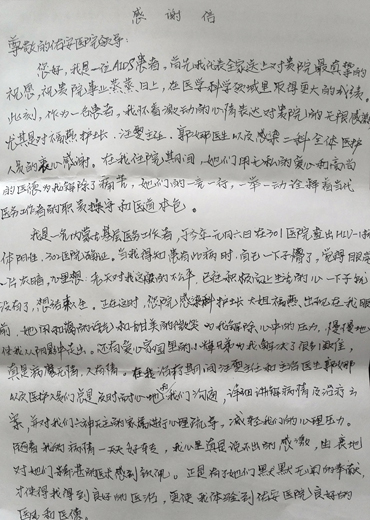 感谢信
尊敬的佑安医院领导：
您好，我是一位AIDS患者，首先我代表全家送上对贵院最真挚的
祝愿，祝贵院事业蒸蒸日上，在医学科学领域里取得更大的成绩。
此刻，作为一名患者，我怀着激动的心情表达对贵院的无限感激
尤其是对福燕护士长、汪雯主任、郭 医生以及感染二科全体医护
人员的衷心感谢。在我住院其间，她们用无私的爱心和高尚
的医德为我解除了痛苦，她们的一言一行，一举一动诠释着当代
医务工作者的职责操守和医道本色。
我是一名内蒙古基层医务工作者，于今年元月六日在301医院查出HIV-1抗
体阳性，302医院确证。当我得知患有此病时，而已一下子懵了，觉得眼前
一片灰暗，心里想：老天对我这样的不公平，已经积极向上生活的心一下子就
没有了，想 轻生。正在这时，佑安医院感染科护士长大姐福燕出现在我眼
前，她用和蔼的语言和甜美的微笑为我解除心中的压力，慢慢地
使我从阴影中走出。还有爱心家园里的小 兄弟为我解决了很多 ，
真是病魔无情，人有情。在我治疗其间汪雯主任和主治医生郭
以及医护人员们总是及时而耐心地和我们沟通，详细讲解病情及治疗方
案，并对我们 的家属进行心理疏导，减轻我们的心理压力。
随着我的病情一天天好转，我心里真是说不出的感激，由衷地
对她们精湛的医术感到钦佩。正是有了她们默默无闻的奉献，
才使得我得到良好的医治，更使我体验到佑安医院良好的
医风和医德。